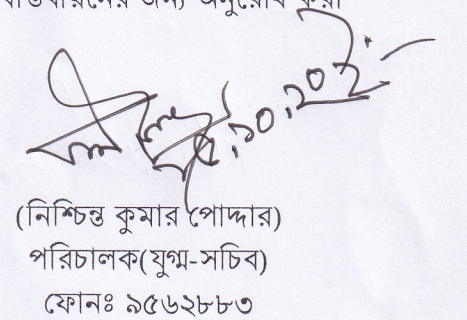 অনুরোধ করা
(নিশ্চিন্ত কুমার পোদ্দার)
পরিচালক(যুগ্ম-সচিব)
ফোনঃ ৯৫৬২৮৮৩